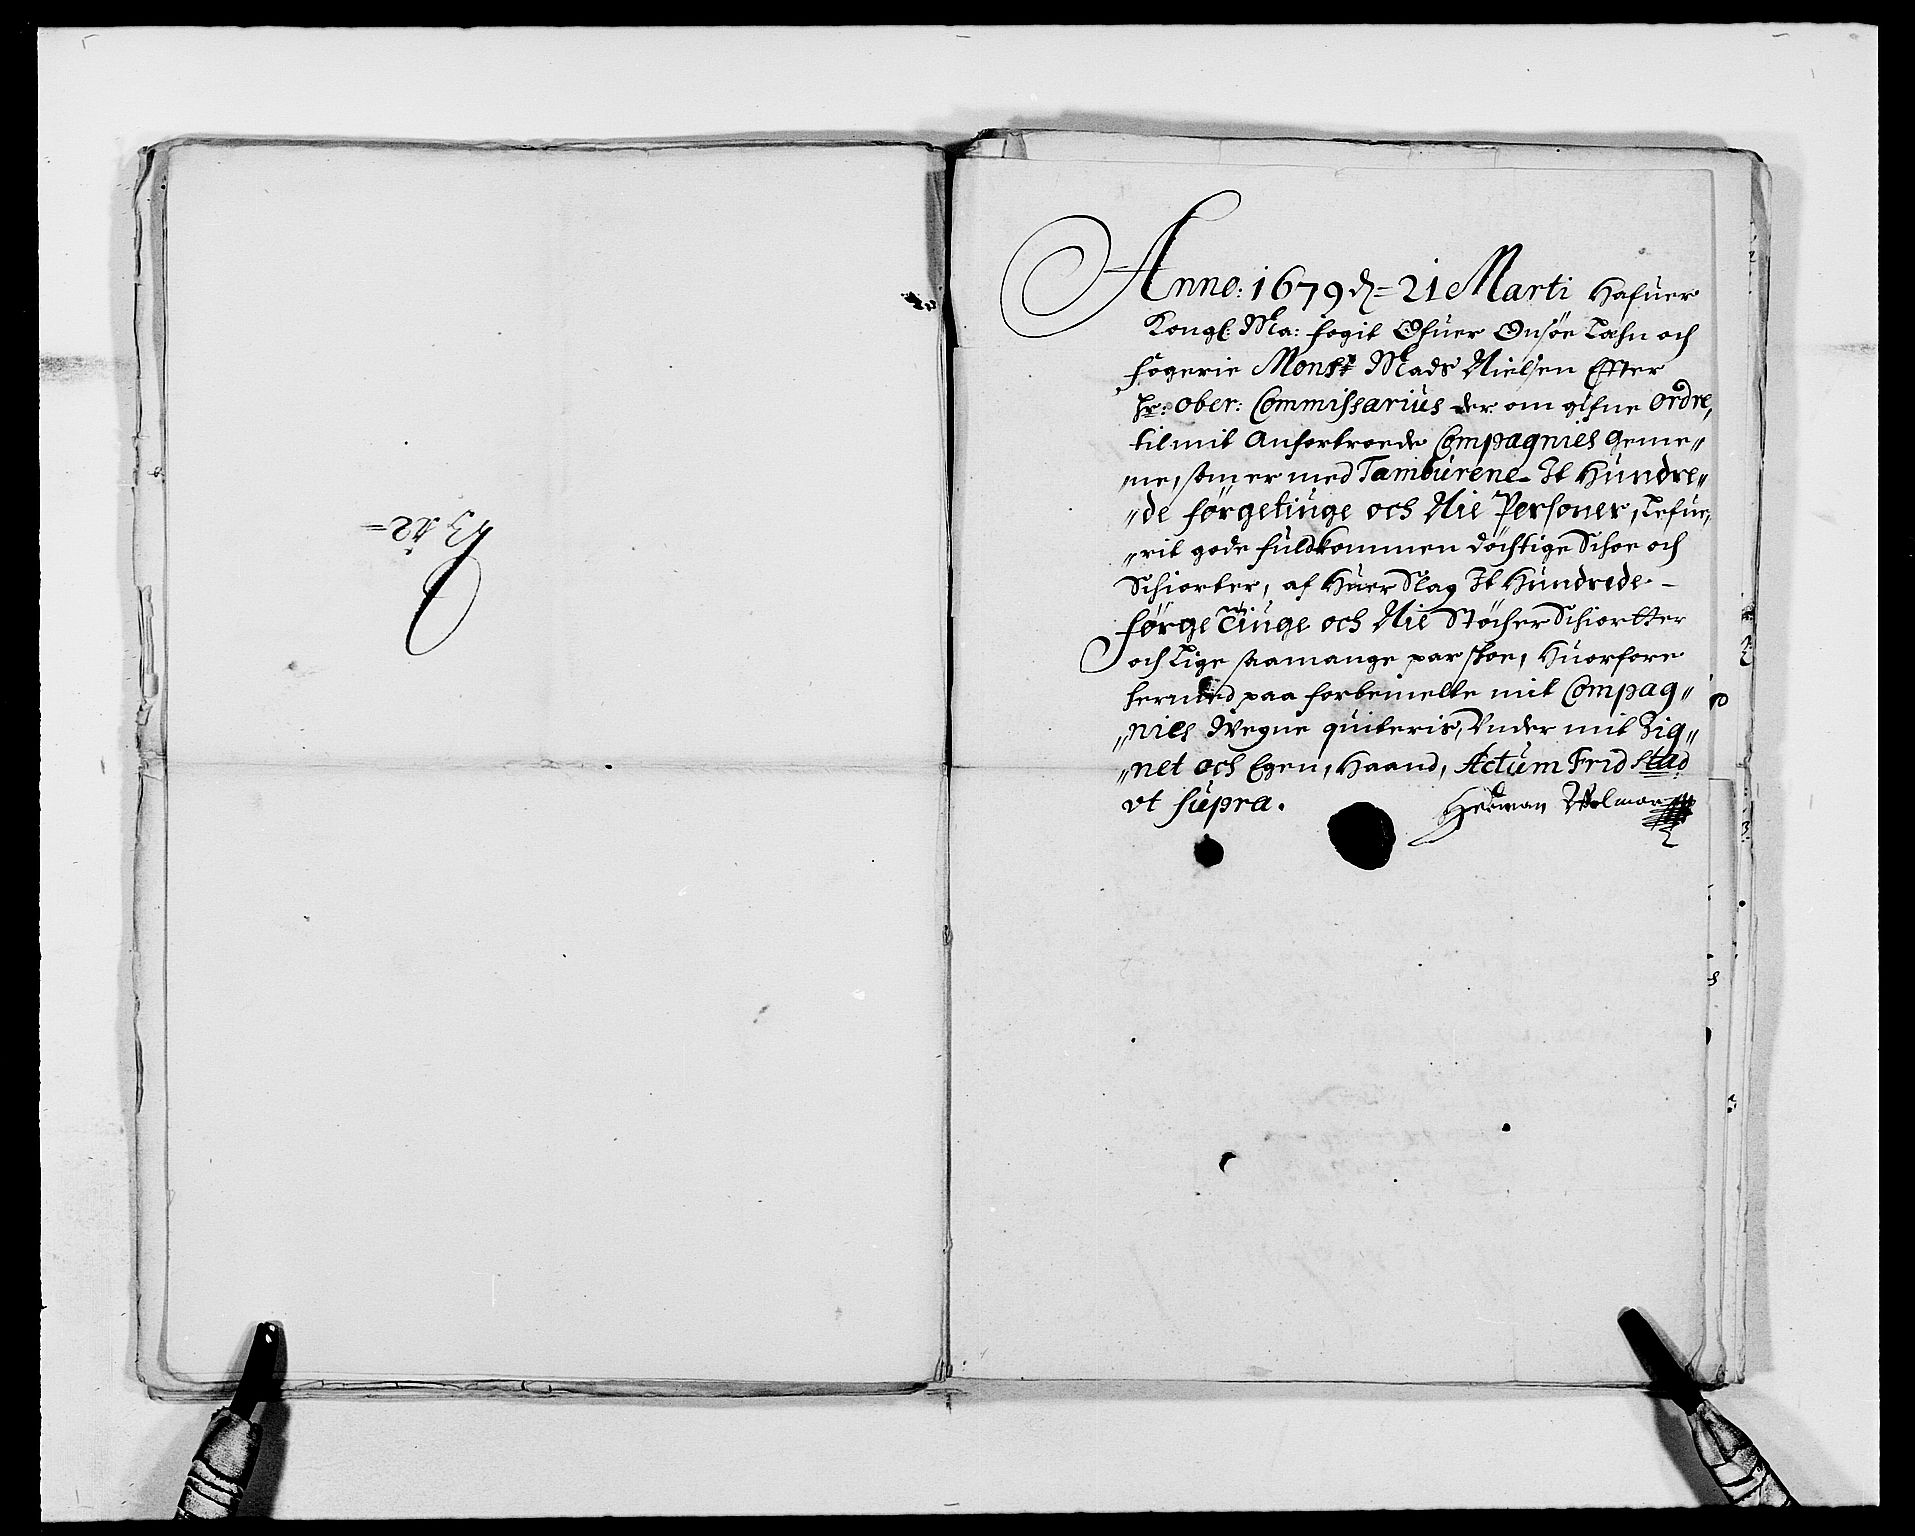 Anno: 1679 d= 21 Marti Hafuer
Kongl: Ma: fogit Ofuer Onsöe Læhn och
fogerie Monsr Mads Nielsen Effter
Hr: ober: Commissarius der om gifne ordre,
til mit Anfortroede Compagnies Geme„
„ne, som er med Tambúrene It Húndre„
„de førgetiúge och Nie Personer, Lefúe„
„rit gode fúldkommen döchtige Schoe och
Schiorter, af Húer Slag It Húndrede –
førgetiúge och Nie Stöcher Schiortter
och Lige saamange par skoe, Húorfore
hermed paa forbemelte mit Compag„
„nies Wegne qúiteris, Vnder mit Zig„
„net och Egen, Haand, Actúm Fridstad
vt súpra.
Herman Wolmar